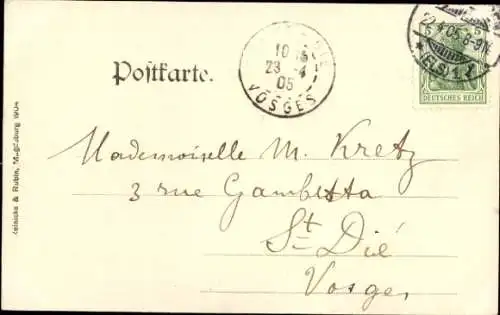 Postkarte.
10
23 -4
05
VOSGES
5 5
22.4.05. 8-9N.
* (ELS) 1. *
DEUTSCHES REICH
Mademoiselle M. Kretz
3 rue Gambetta
St Dié
Vosges
Reinicke & Rubin, Magdeburg 1904